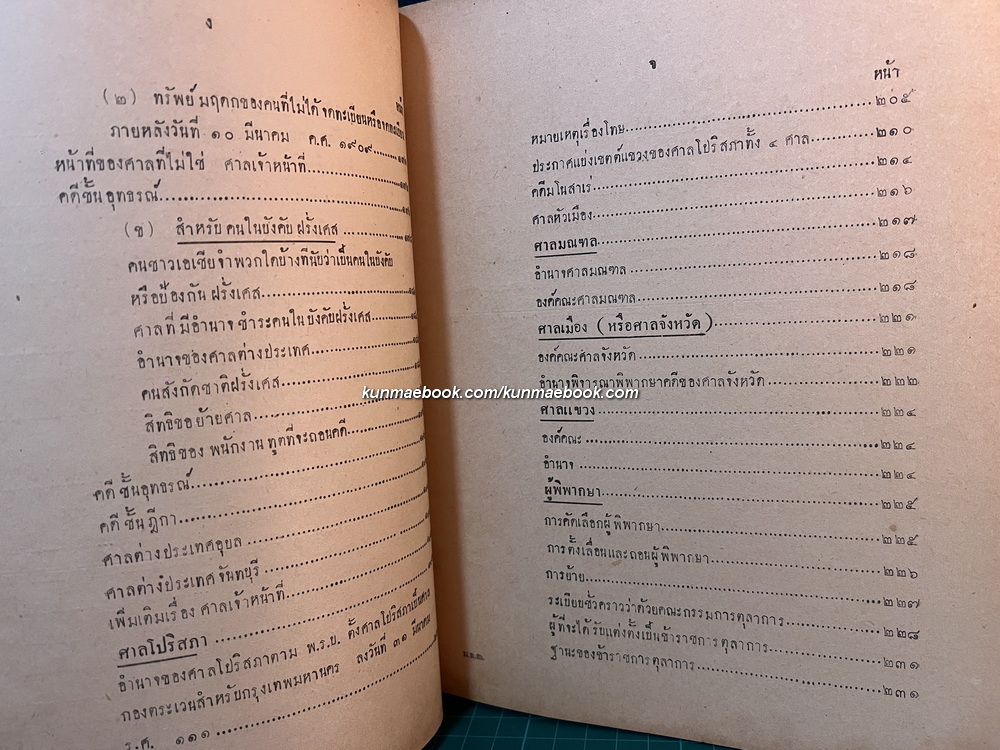 ง
(๒) ทรัพย์มฤดกของคนที่ไม่ได้จดทะเบียนหรือจดทะเบียน
ภายหลังวันที่ ๑๐ มีนาคม ค.ศ. ๑๙๐๙
หน้าที่ของศาลที่ไม่ใช่ ศาลเจ้าหน้าที่
คดีชั้นอุทธรณ์
(ข) สำหรับคนในบังคับฝรั่งเศส
คนชาวเอเซียจำพวกใดบ้างที่นับว่าเป็นคนในบังคับ
หรือป้องกันฝรั่งเศส
ศาลที่มีอำนาจชำระคนในบังคับฝรั่งเศส
อำนาจของศาลต่างประเทศ
คนสังกัดชาติฝรั่งเศส
สิทธิขอย้ายศาล
สิทธิของพนักงานทูตที่จะถอนคดี
คดีชั้นอุทธรณ์
คดีชั้นฎีกา
ศาลต่างประเทศอุบล
ศาลต่างประเทศจันทบุรี
เพิ่มเติมเรื่องศาลเจ้าหน้าที่
ศาลโปริสภา
อำนาจของศาลโปริสภาตาม พ.ร.บ. ตั้งศาลโปริสภาเป็นศาล
กองตระเวนสำหรับกรุงเทพมหานคร ลงวันที่ ๓๑ มีนาคม
ร.ศ. ๑๑๑
จ
หน้า
หมายเหตุเรื่องโทษ ๒๐๕
ประกาศแบ่งเขตต์แขวงของศาลโปริสภาทั้ง ๔ ศาล ๒๑๐
คดีมโนสาเร่ ๒๑๔
ศาลหัวเมือง ๒๑๖
ศาลมณฑล ๒๑๗
อำนาจศาลมณฑล ๒๑๘
องค์คณะศาลมณฑล ๒๑๘
ศาลเมือง (หรือศาลจังหวัด) ๒๒๑
องค์คณะศาลจังหวัด ๒๒๑
อำนาจพิจารณาพิพากษาคดีของศาลจังหวัด ๒๒๒
ศาลแขวง ๒๒๔
องค์คณะ ๒๒๔
อำนาจ ๒๒๔
ผู้พิพากษา ๒๒๕
การคัดเลือกผู้พิพากษา ๒๒๕
การตั้งเลื่อนและถอนผู้พิพากษา ๒๒๖
การย้าย ๒๒๗
ระเบียบชั่วคราวว่าด้วยคณะกรรมการตุลาการ ๒๒๘
ผู้ที่จะได้รับแต่งตั้งเป็นข้าราชการตุลาการ ๒๓๑
ฐานะของข้าราชการตุลาการ ๒๓๑
kunmaebook.com/kunmaebook.com